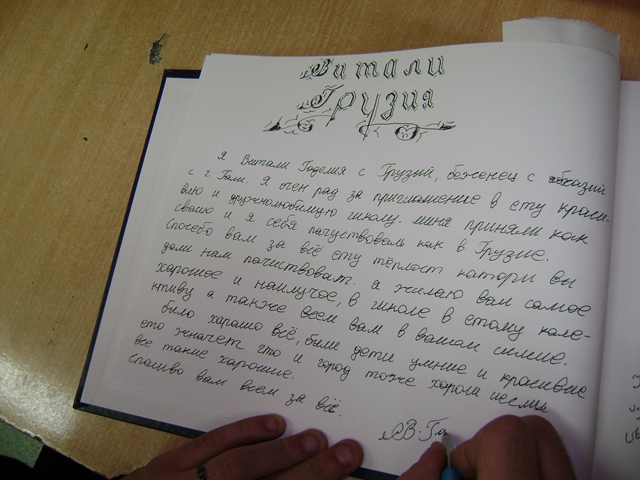 Витали
Грузия
Я Витали Годелия с Грузий, беженец с абхазий
с г. Гали. Я очен рад за приглашение в ету краси-
вию и дружнолюбимую школу. миня приняли как
своию и я себя пачуствовал как в Грузие.
Спосебо вам за всё ету тёплост катори вы
дали нам пачиствоват. а жилаю вам самое
харошое и наилучое, в школе в етому коле-
ктиву а также всем вам в вашом симие.
било харашо всё, били дети умние и красивие
ето жначет што и город тоже хорош
все такие харошие.
спасиво вам всем за всё.